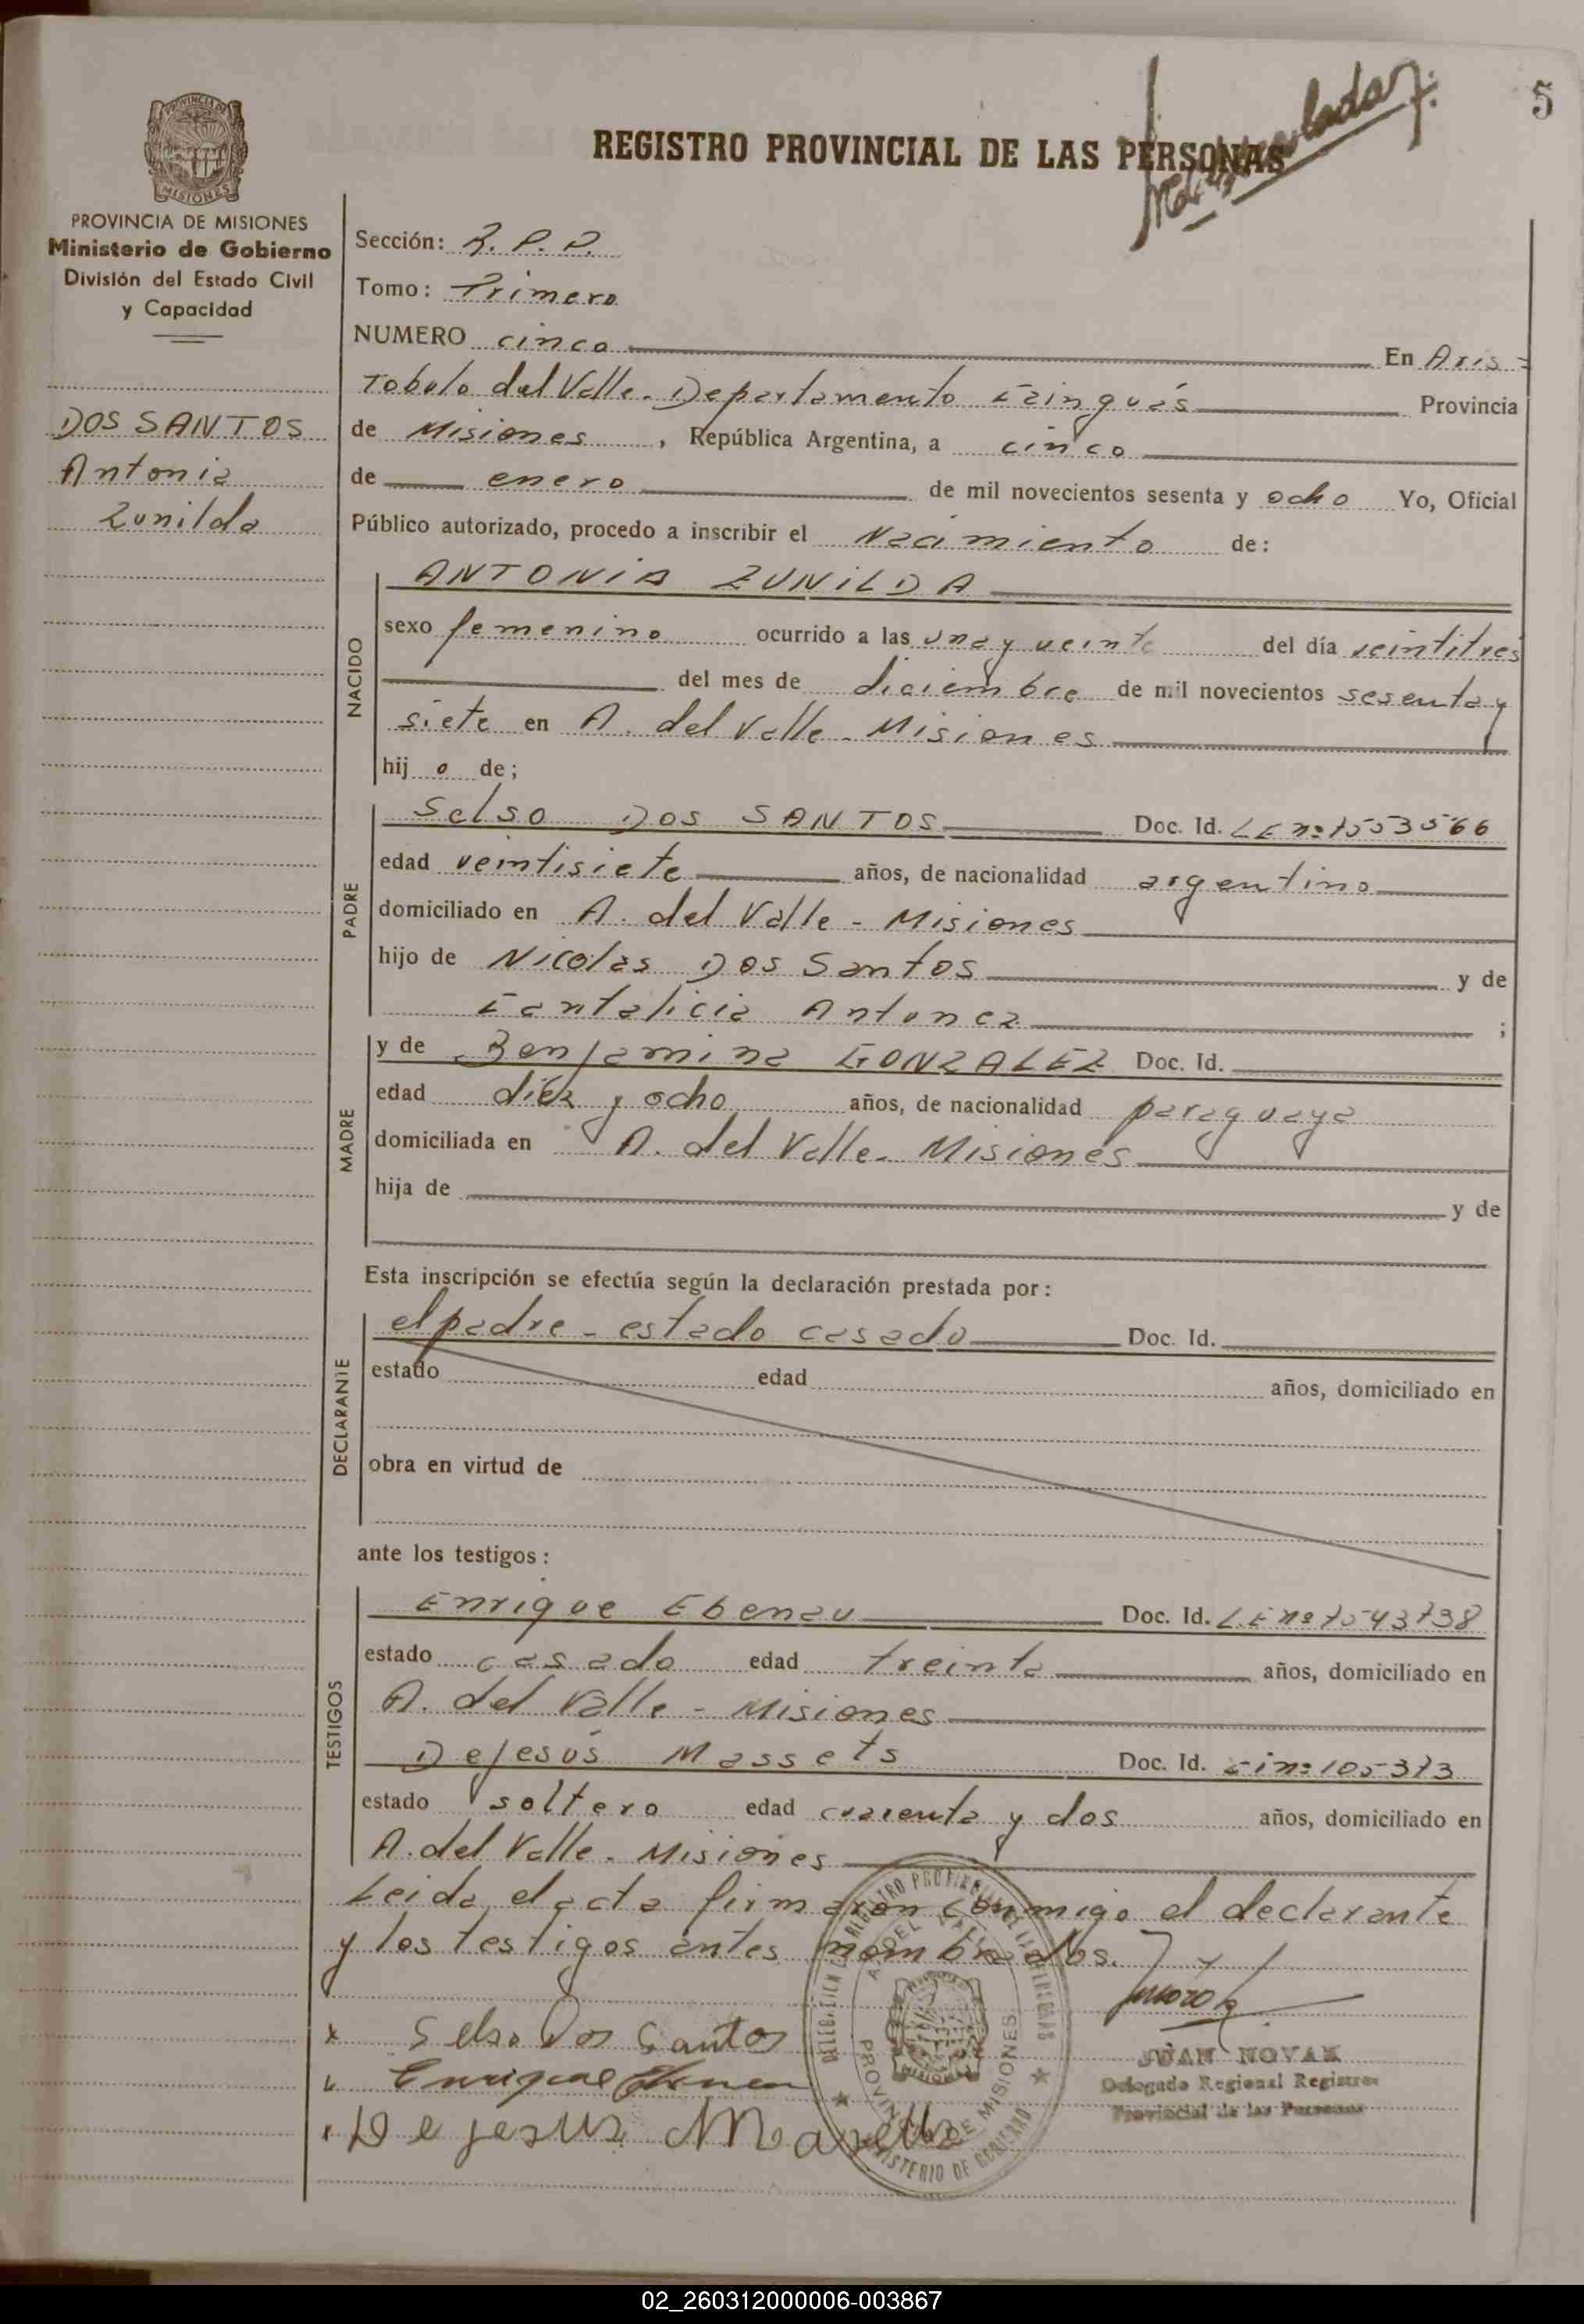 5
REGISTRO PROVINCIAL DE LAS PERSONAS
PROVINCIA DE MISIONES
Ministerio de Gobierno
División del Estado Civil
y Capacidad
DOS SANTOS
Antonia
Zunilda
Sección: R. P. P.
Tomo: Primero
NUMERO cinco En Aris=
tobulo del Valle. Departamento Cainguás Provincia
de Misiones, República Argentina, a cinco
de enero de mil novecientos sesenta y ocho Yo, Oficial
Público autorizado, procedo a inscribir el Nacimiento de:
NACIDO
ANTONIA ZUNILDA
sexo femenino ocurrido a las una y veinte del día veintitres
del mes de diciembre de mil novecientos sesenta y
siete en A. del Valle - Misiones
hij o de;
PADRE
Selso DOS SANTOS Doc. Id. LE nº 7553566
edad veintisiete años, de nacionalidad argentino
domiciliado en A. del Valle - Misiones
hijo de Nicolas Dos Santos y de
Antunez ;
MADRE
y de Benjamina GONZALEZ Doc. Id.
edad diez y ocho años, de nacionalidad paraguaya
domiciliada en A. del Valle. Misiones
hija de y de
Esta inscripción se efectúa según la declaración prestada por:
DECLARANTE
el padre - estado casado Doc. Id.
estado edad años, domiciliado en
obra en virtud de
ante los testigos:
TESTIGOS
Enrique Ebenau Doc. Id. L.E nº 7543738
estado casado edad treinta años, domiciliado en
A. del Valle - Misiones
Dejesús Massets Doc. Id. nº 105373
estado soltero edad cuarenta y dos años, domiciliado en
A. del Valle. Misiones
Leida el acta firmaron conmigo el declarante
y los testigos antes nombrados.
x Selso Dos Santos
Enrique
Dejesus
DELEGACION REGISTRO PROVINCIAL DE LAS PERSONAS
A. DEL VALLE
PROVINCIA DE MISIONES
MINISTERIO DE GOBIERNO
JUAN NOVAK
Delegado Regional Registro
Provincial de las Personas
02_260312000006-003867